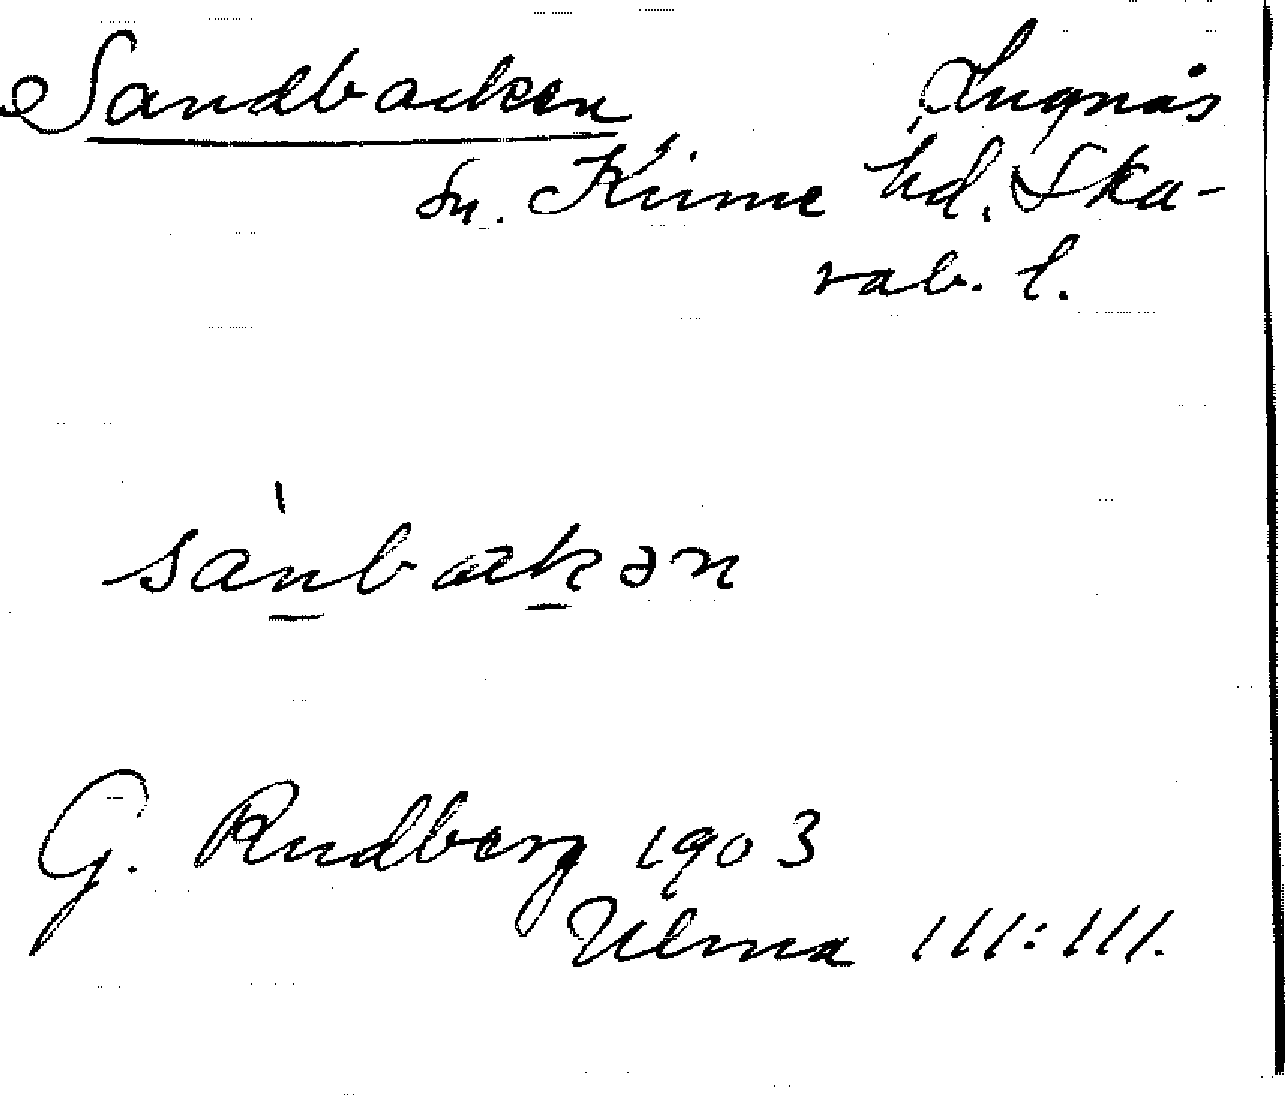 Sandbacken Lugnås
sn. Kinne hd. Ska-
rab. l.
sànbackən
G. Rudberg 1903
Ulma 111:111.